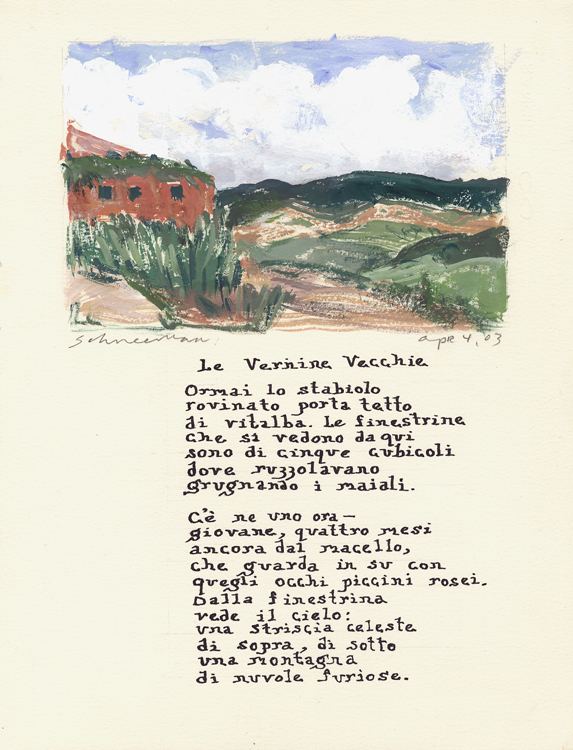 Schneeman
apr 4, 03
Le Vernine Vecchie
Ormai lo stabiolo
rovinato porta tetto
di vitalba. Le finestrine
che si vedono da qui
sono di cinque cubicoli
dove ruzzolavano
grugnando i maiali.
C'è ne uno ora—
giovane, quattro mesi
ancora dal macello,
che guarda in su con
quegli occhi piccini rosei.
Dalla finestrina
vede il cielo:
una striscia celeste
di sopra, di sotto
una montagna
di nuvole furiose.